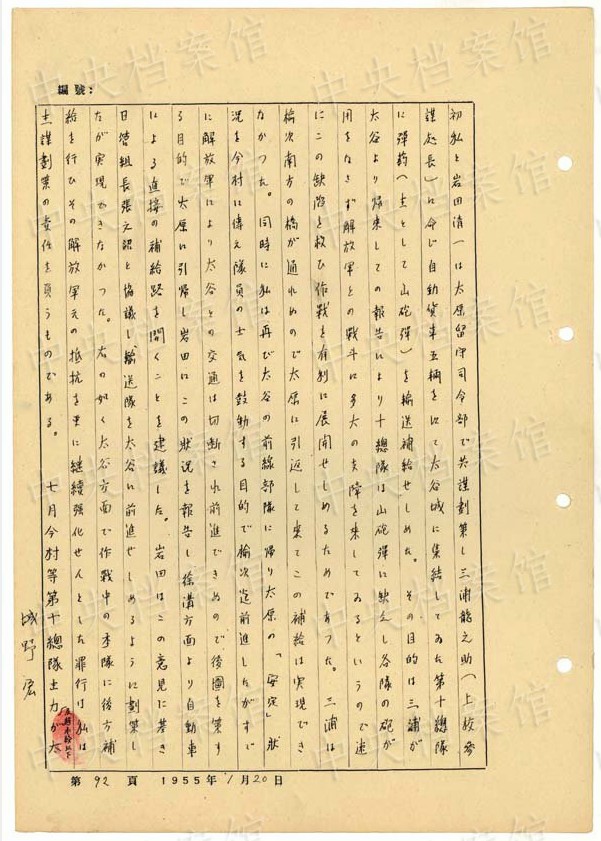 編號：
初私と岩田清一は太原留守司令部で共謀劃策し三浦龍之助（上校参
謀処長）に命じ自動貨車五輌を以て太谷城に集結してゐた第十總隊
に彈葯（主として山砲彈）を輸送補給せしめた。その目的は三浦が
太谷より帰来しての報告により十總隊は山砲彈に缺乏し各隊の砲が
用をなさず解放軍との戦斗に多大の支障を来してゐるというので速
にこの缺陥を救ひ作戰を有利に展開せしめるためであつた。三浦は
榆次南方の橋が通れぬので太原に引返して来てこの補給は実現でき
なかつた。同時に私は再び太谷の前線部隊に帰り太原の「安定」狀
況を今村に傳え隊員の士気を鼓動する目的で榆次迄前進したがすで
に解放軍により太谷との交通は切断され前進できぬので後圖を策す
る目的で太原に引帰し岩田にこの狀況を報告し徐溝方面より自動車
による直接の補給路を開くことを建議した。岩田はこの意見に基き
日管組長張文紹と協議し輸送隊を太谷に前進せしめるように劃策し
たが実現できなかつた。右の如く太谷方面で作戦中の本隊に後方補
給を行ひその解放軍えの抵抗を更に継続強化せんとした罪行は私は
主謀劃策の責任を負うものである。
七月今村等第十總隊主力が太
城野宏
第 92 頁 1955年 1月20日
中央档案馆